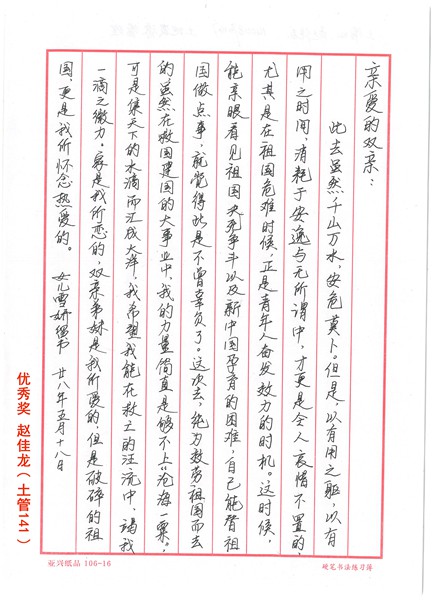 亲爱的双亲：
此去虽然千山万水，安危莫卜。但是，以有用之躯，以有
用之时间，有耗于安逸与无所谓中，才更是令人哀惜不置的，
尤其是在祖国危难时候，正是青年人奋发效力的时机。这时候，
能亲眼看见祖国决死争斗以及新中国孕育的困难，自己能替祖
国做点事，就觉得此是不曾辜负了。这次去，纯为效劳祖国而去
的，虽然在救国建国的大事业中，我的力量简直是够不上沧海一粟，
可是集天下的水滴而汇成大洋，我希望我能在救亡的汪流中，竭我
一滴之微力。家是我所恋的，双亲弟妹是我所爱的，但是破碎的祖
国，更是我所怀念热爱的。
女儿雪妍留书 廿八年五月十八日
优秀奖 赵佳龙（土管141）
亚兴纸品 106-16
硬笔书法练习簿